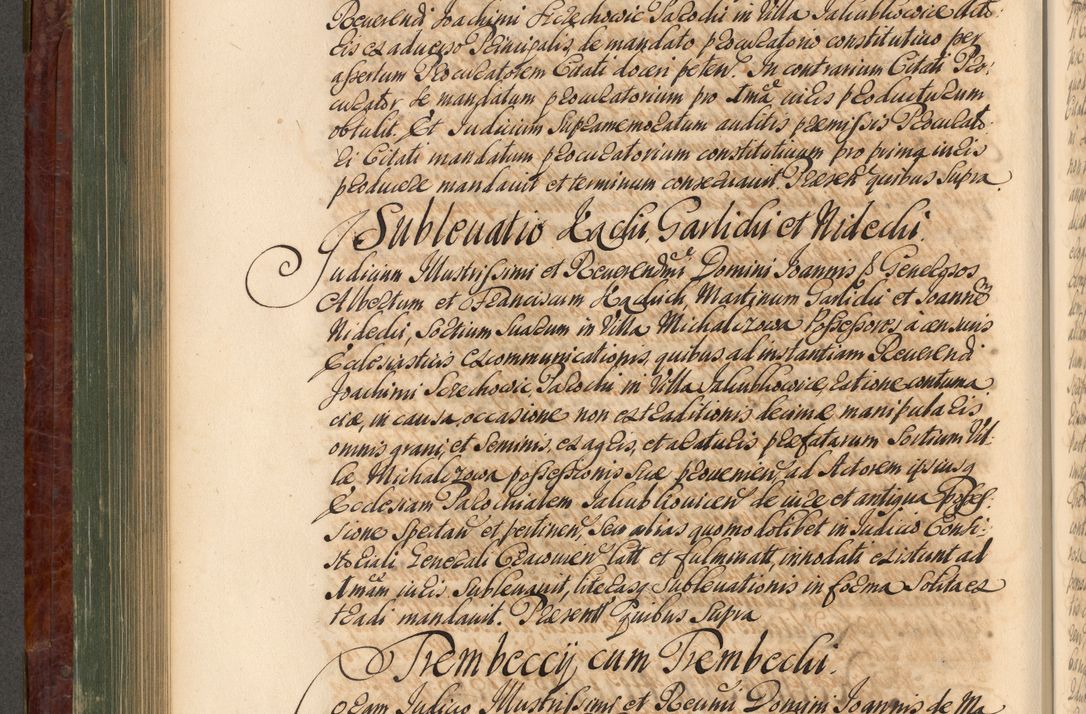 Reuerendi Joachimi Szrechowic Parochi in Villa Jakubkowice Acto-
ris ex aduerso Principalis de mandato procuratorio constitutiuo per
assertum Procuratorem Citati doceri peten. In contrarium Citati Pro-
curator se mandatum procuratorium pro Ima iuris producturum
obtulit. Et Judicium supramemoratum auditis praemissis Procurato-
ri Citati mandatum procuratorium constitutiuum pro prima iuris
producere mandauit et terminum conseruauit. Praesen. quibus supra.
Subleuatio Radii, Garlicii et Nidecii.
Judicium Illustrissimi et Reuerendmi Domini Joannis P Generosos
Albertum et Franciscum Radich, Martinum Garlicii et Joannem
Nidecii, Sortium Suarum in Villa Michalczowa Possessores a censuris
Ecclesiasticis excommunicationis, quibus ad instantiam Reuerendi
Joachimi Szrechowic, Parochi in Villa Jakubkowice, ratione contuma
ciae, in causa, occasione non extraditionis decimae manipularis
omnis grani, et seminis, ex agris, et araturis praefatarum Sortium Vil-
lae Michalczowa possessionis suae prouenien. ad Actorem ipsiusq
Ecclesiam Parochialem Jakubkouicen. de iure et antiqua Posses-
sione spectan. et pertinen. seu alias quomodolibet in Judicio Consi-
storiali Generali Cracouien. latis et fulminatis, innodati existunt ad
Imam iuris Subleuauit, literasq Subleuationis in forma Solita ex
tradi mandauit. Praesentt. Quibus Supra
Trembeccij cum Trembecki.
Coram Judicio Illustrissimi et Reuerendmi Domini Joannis de Ma